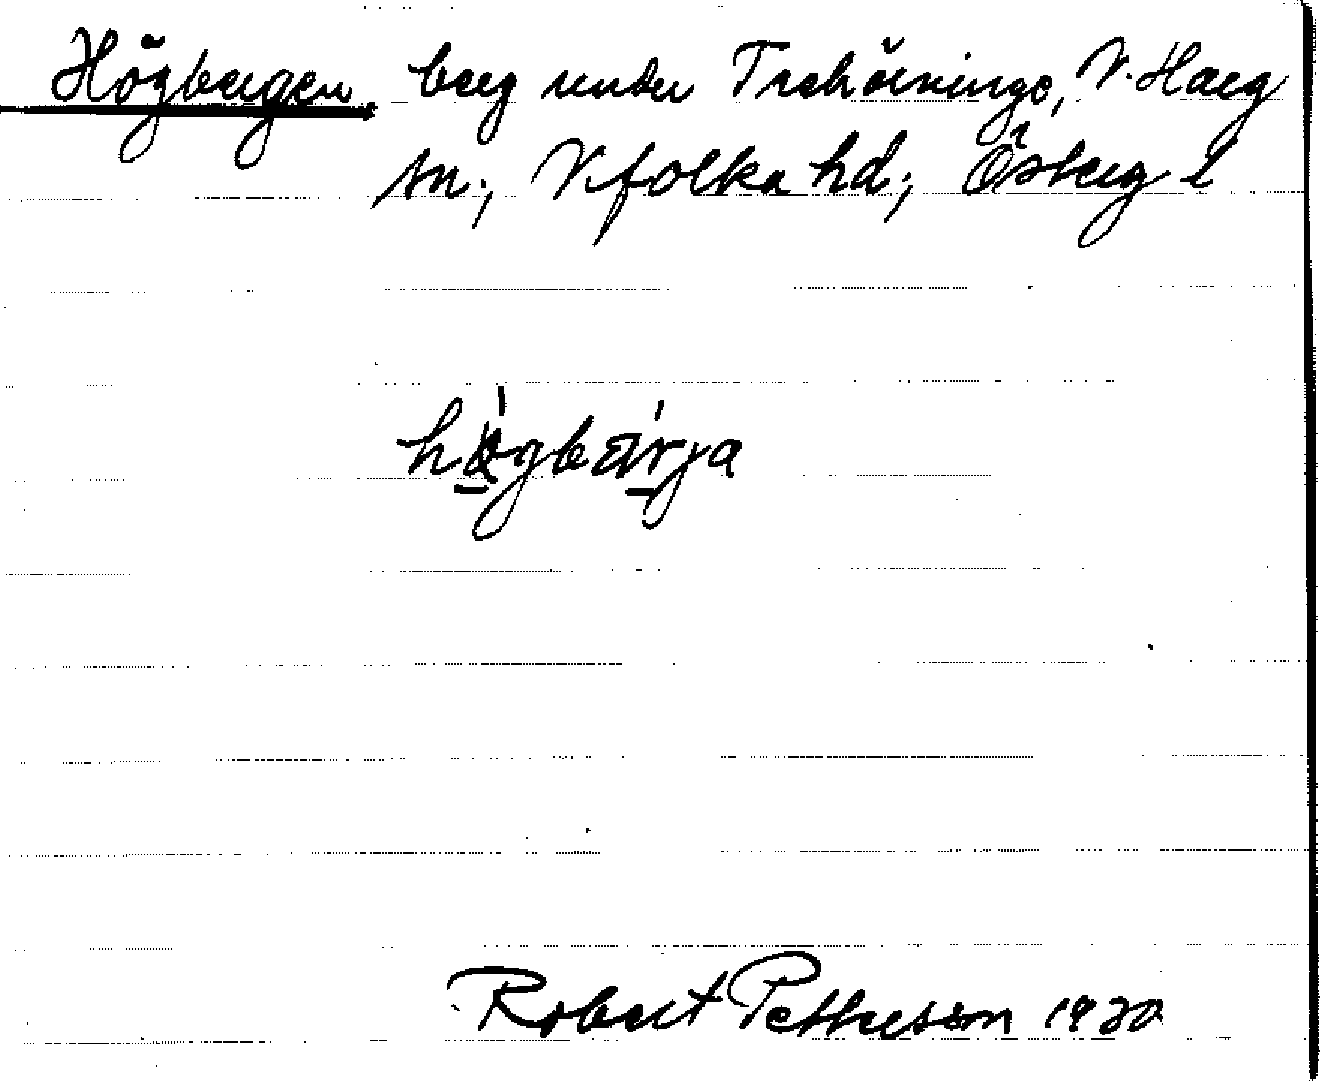 Högbergen, berg under Trehörninge, V. Harg
sn; Vifolka hd; Österg l
högbärja
Robert Pettersson 1920